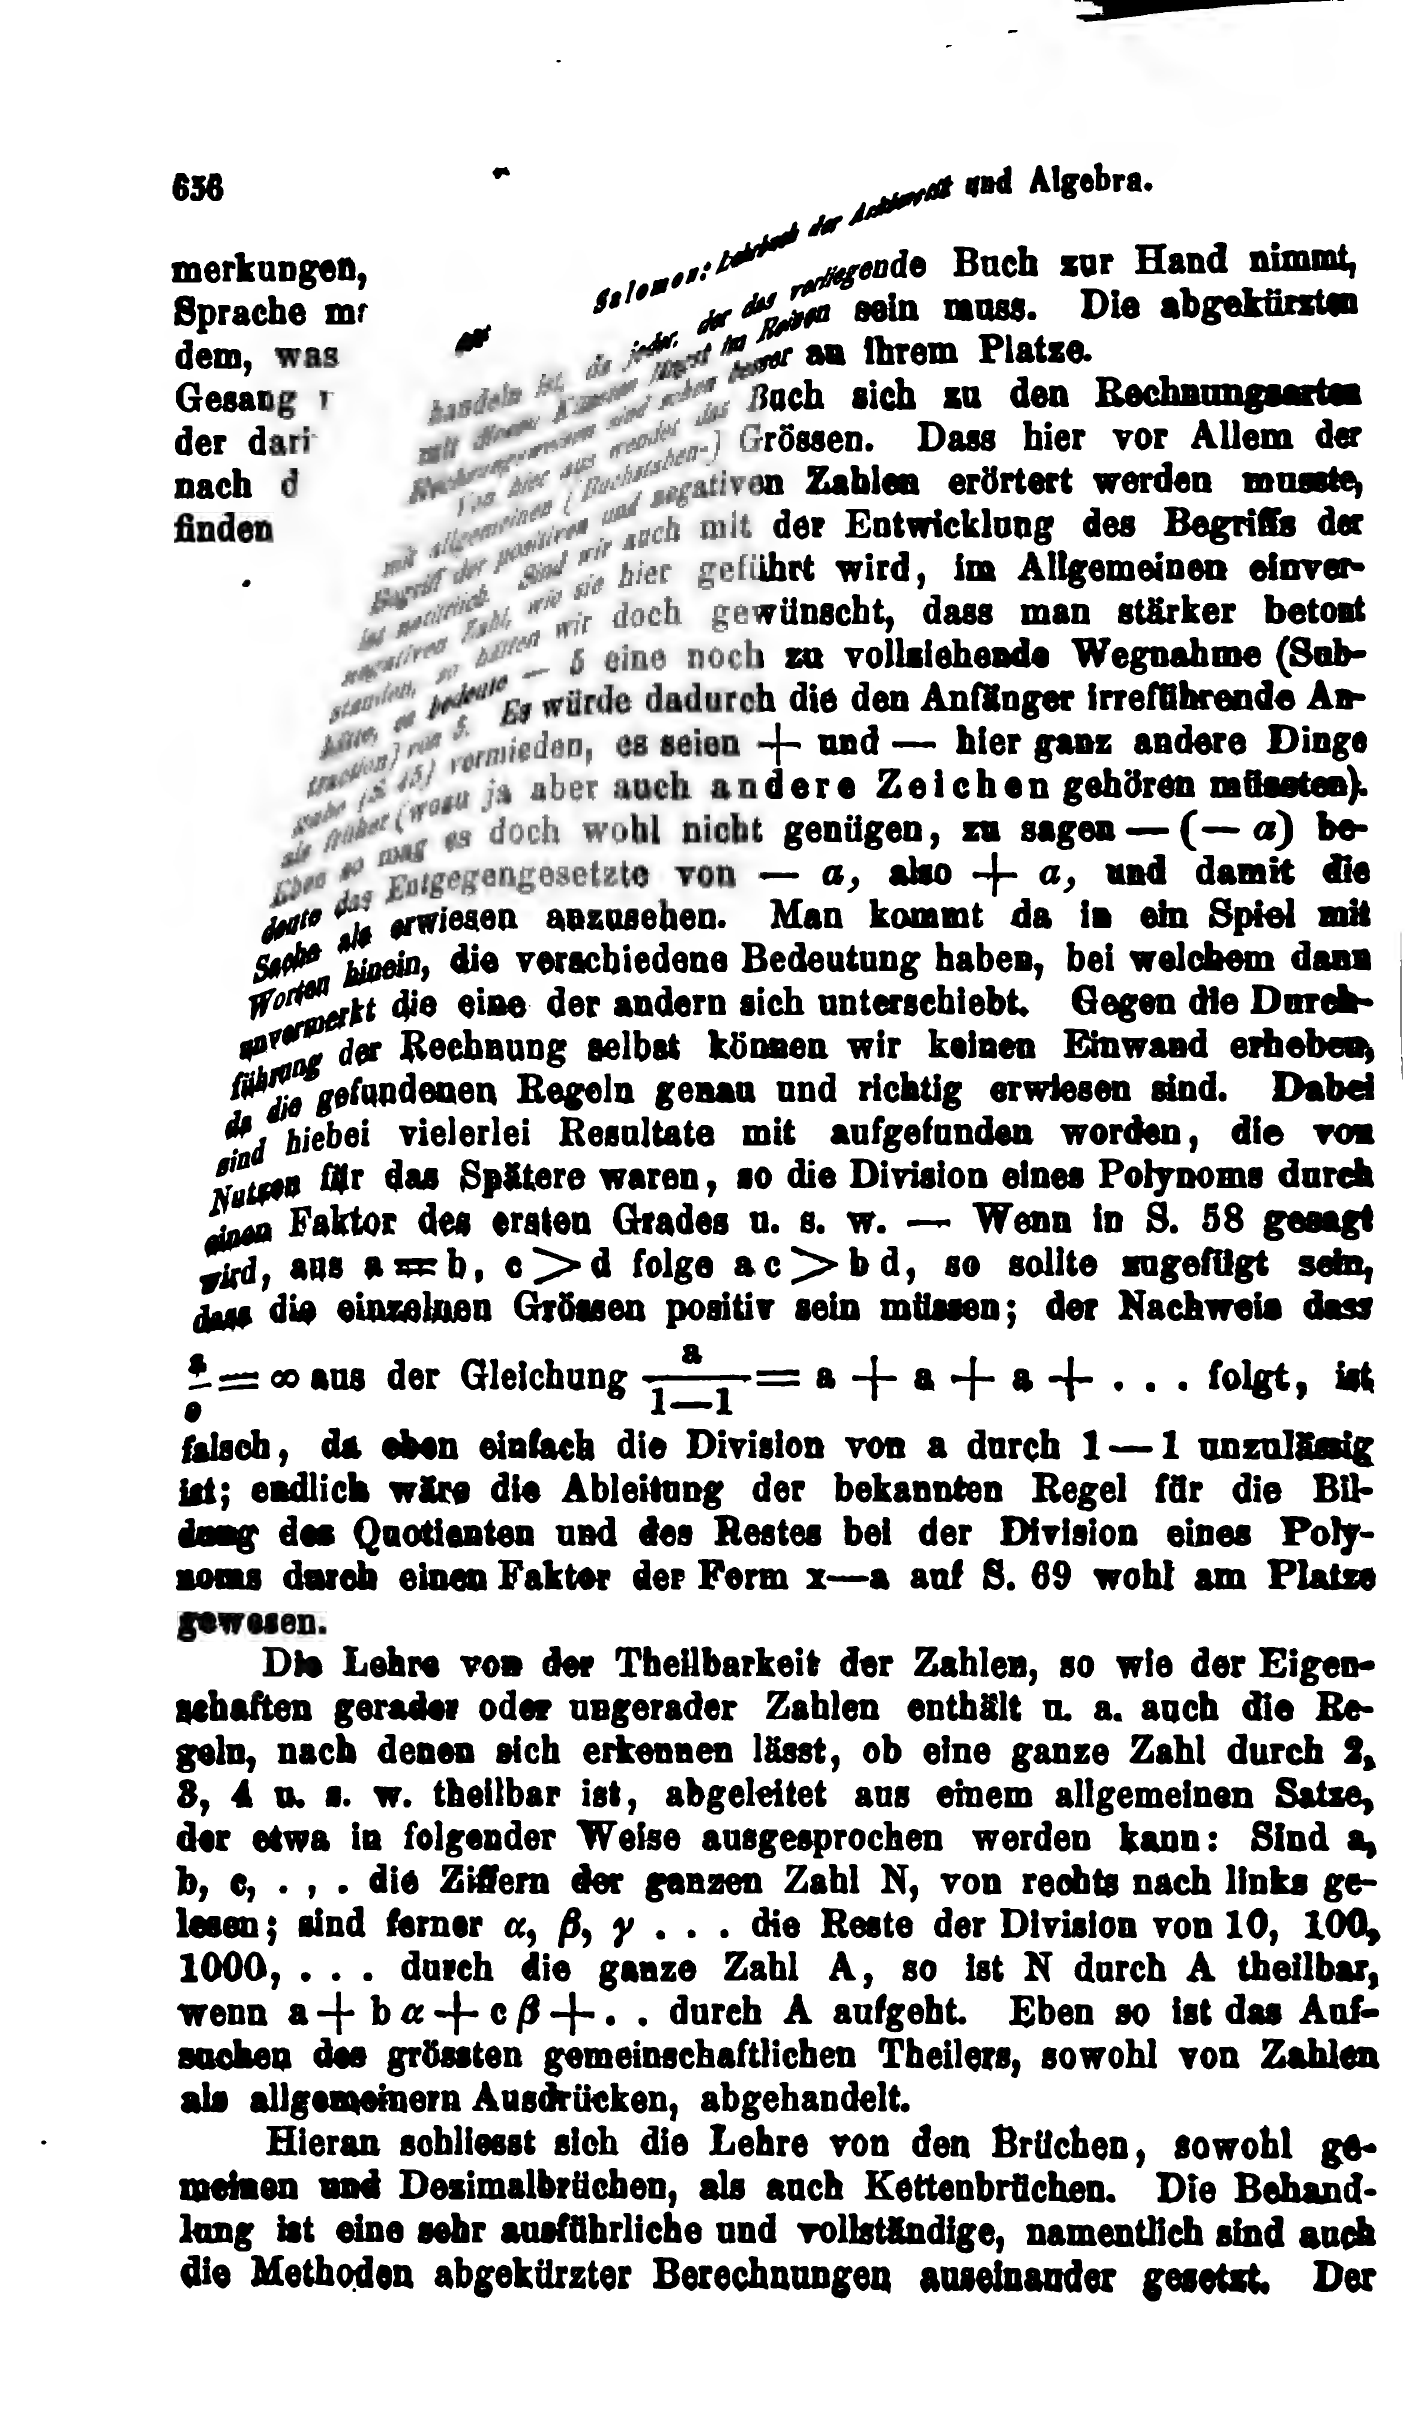 636
Salomon: Lehrbuch der Arithmetik und Algebra.
merkungen,
Sprache
dem, was
Gesang
der
nach
finden
handeln ist, da jeder, der das vorliegende Buch zur Hand nimmt,
mit längst im Reinen sein muss. Die abgekürzten
Rechnungsweisen sind schon besser an ihrem Platze.
Von hier aus wendet das Buch sich zu den Rechnungsarten
mit allgemeinen (Buchstaben-) Grössen. Dass hier vor Allem der
Begriff der positiven und negativen Zahlen erörtert werden musste,
ist natürlich. Sind wir auch mit der Entwicklung des Begriffs der
negativen Zahl, wie sie hier geführt wird, im Allgemeinen einver-
standen, so hätten wir doch gewünscht, dass man stärker betont
hätte, es bedeute — 5 eine noch zu vollziehende Wegnahme (Sub-
traction) von 5. Es würde dadurch die den Anfänger irreführende An-
gabe (S. 45) vermieden, es seien + und — hier ganz andere Dinge
als früher (wozu ja aber auch andere Zeichen gehören müssten).
Eben so mag es doch wohl nicht genügen, zu sagen — (— a) be-
deute das Entgegengesetzte von — a, also + a, und damit die
Sache als erwiesen anzusehen. Man kommt da in ein Spiel mit
Worten hinein, die verschiedene Bedeutung haben, bei welchem dann
unvermerkt die eine der andern sich unterschiebt. Gegen die Durch-
führung der Rechnung selbst können wir keinen Einwand erheben,
da die gefundenen Regeln genau und richtig erwiesen sind. Dabei
sind hiebei vielerlei Resultate mit aufgefunden worden, die von
Nutzen für das Spätere waren, so die Division eines Polynoms durch
einen Faktor des ersten Grades u. s. w. — Wenn in S. 58 gesagt
wird, aus a = b, c > d folge a c > b d, so sollte zugefügt sein,
dass die einzelnen Grössen positiv sein müssen; der Nachweis dass
a/0 = ∞ aus der Gleichung a/(1—1) = a + a + a + . . . folgt, ist
falsch, da eben einfach die Division von a durch 1—1 unzulässig
ist; endlich wäre die Ableitung der bekannten Regel für die Bil-
dung des Quotienten und des Restes bei der Division eines Poly-
noms durch einen Faktor der Form x—a auf S. 69 wohl am Platze
gewesen.
Die Lehre von der Theilbarkeit der Zahlen, so wie der Eigen-
schaften gerader oder ungerader Zahlen enthält u. a. auch die Re-
geln, nach denen sich erkennen lässt, ob eine ganze Zahl durch 2,
3, 4 u. s. w. theilbar ist, abgeleitet aus einem allgemeinen Satze,
der etwa in folgender Weise ausgesprochen werden kann: Sind a,
b, c, . , . die Ziffern der ganzen Zahl N, von rechts nach links ge-
lesen; sind ferner α, β, γ . . . die Reste der Division von 10, 100,
1000, . . . durch die ganze Zahl A, so ist N durch A theilbar,
wenn a + b α + c β + . . durch A aufgeht. Eben so ist das Auf-
suchen des grössten gemeinschaftlichen Theilers, sowohl von Zahlen
als allgemeinern Ausdrücken, abgehandelt.
Hieran schliesst sich die Lehre von den Brüchen, sowohl ge-
meinen und Dezimalbrüchen, als auch Kettenbrüchen. Die Behand-
lung ist eine sehr ausführliche und vollständige, namentlich sind auch
die Methoden abgekürzter Berechnungen auseinander gesetzt. Der